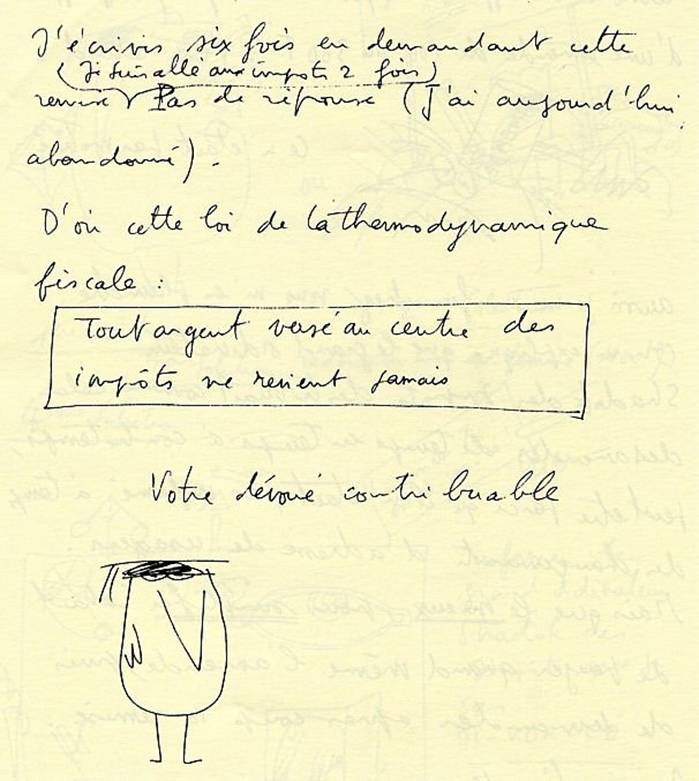 J'écrivis six fois en demandant cette
(Je suis allé aux impots 2 fois)
remise Pas de réponse (J'ai aujourd'hui
abandonné).
D'où cette loi de la thermodynamique
fiscale :
Tout argent versé au centre des
impôts ne revient jamais
Votre dévoué contribuable